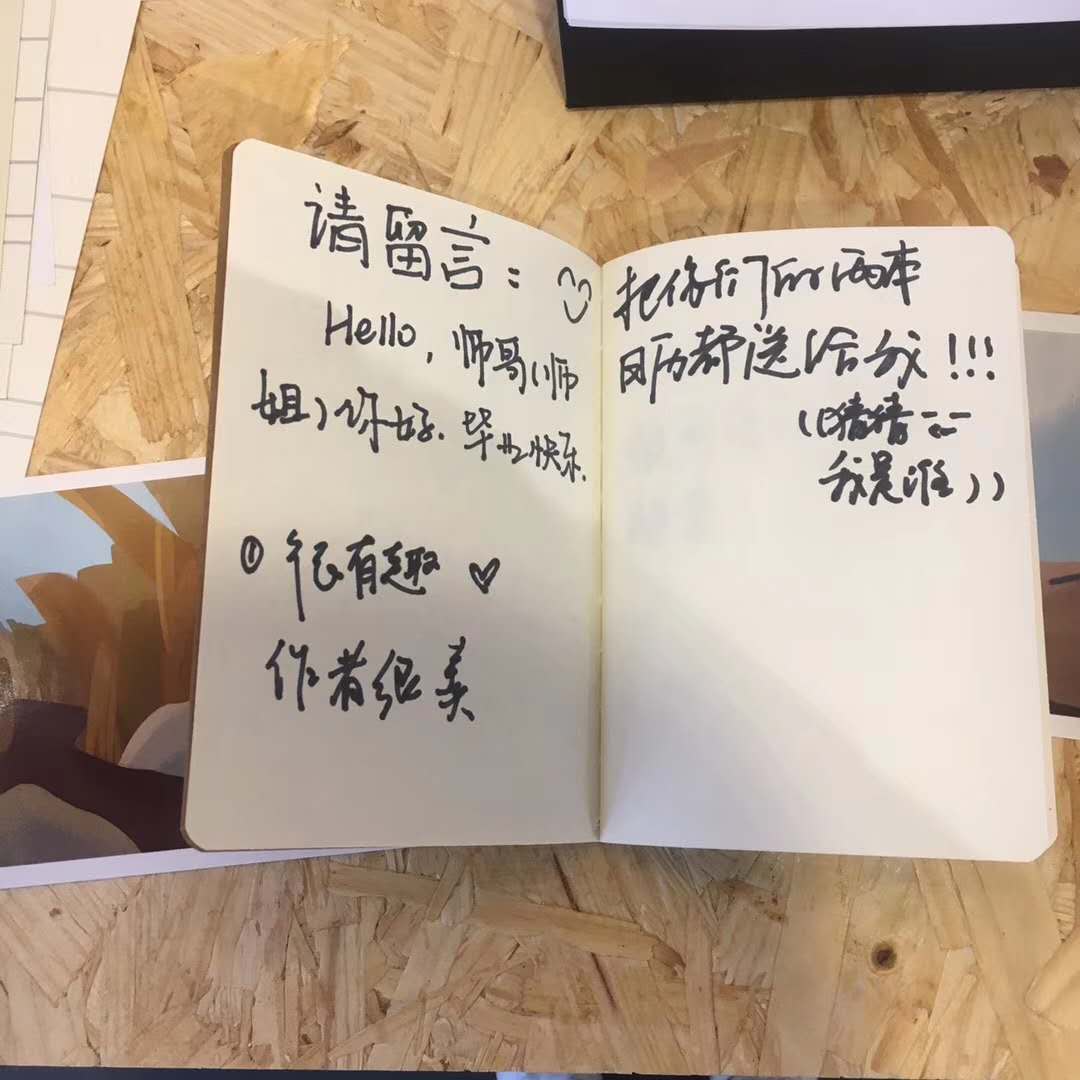 请留言：
Hello，师哥（师
姐）你好．毕业快乐．
① 很有趣 ♡
作者很美
把你们的两本
日历都送给我！！！
（（猜猜
我是谁））